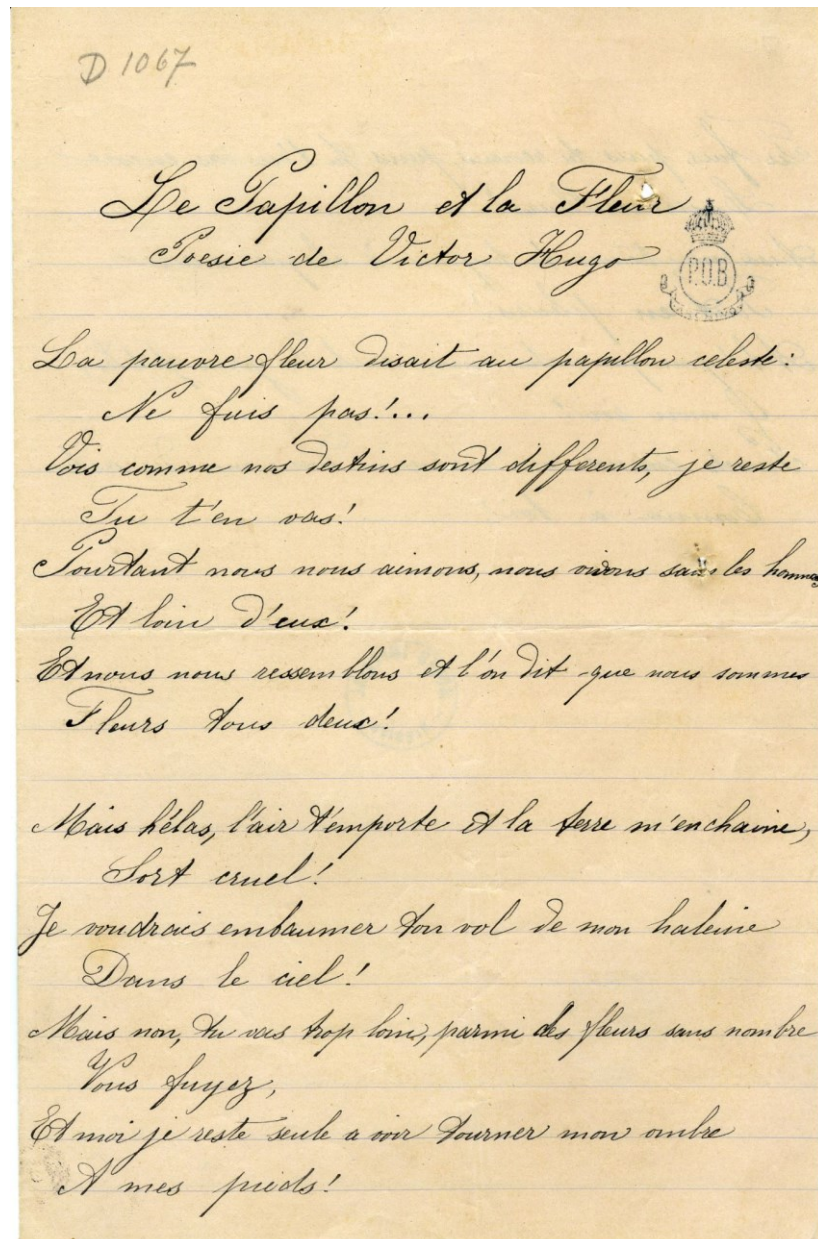 D 1067
Le Papillon et la Fleur
Poesie de Victor Hugo
P.O.B
La pauvre fleur disait au papillon celeste:
Ne fuis pas!...
Vois comme nos destins sont differents, je reste
Tu t'en vas!
Pourtant nous nous aimons, nous vivons sans les hommes
Et loin d'eux!
Et nous nous ressemblons et l'on dit que nous sommes
Fleurs tous deux!
Mais hélas, l'air t'emporte et la terre m'enchaine,
Sort cruel!
Je voudrais embaumer ton vol de mon haleine
Dans le ciel!
Mais non, tu vas trop loin, parmi des fleurs sans nombre
Vous fuyez,
Et moi je reste seule a voir tourner mon ombre
A mes pieds!